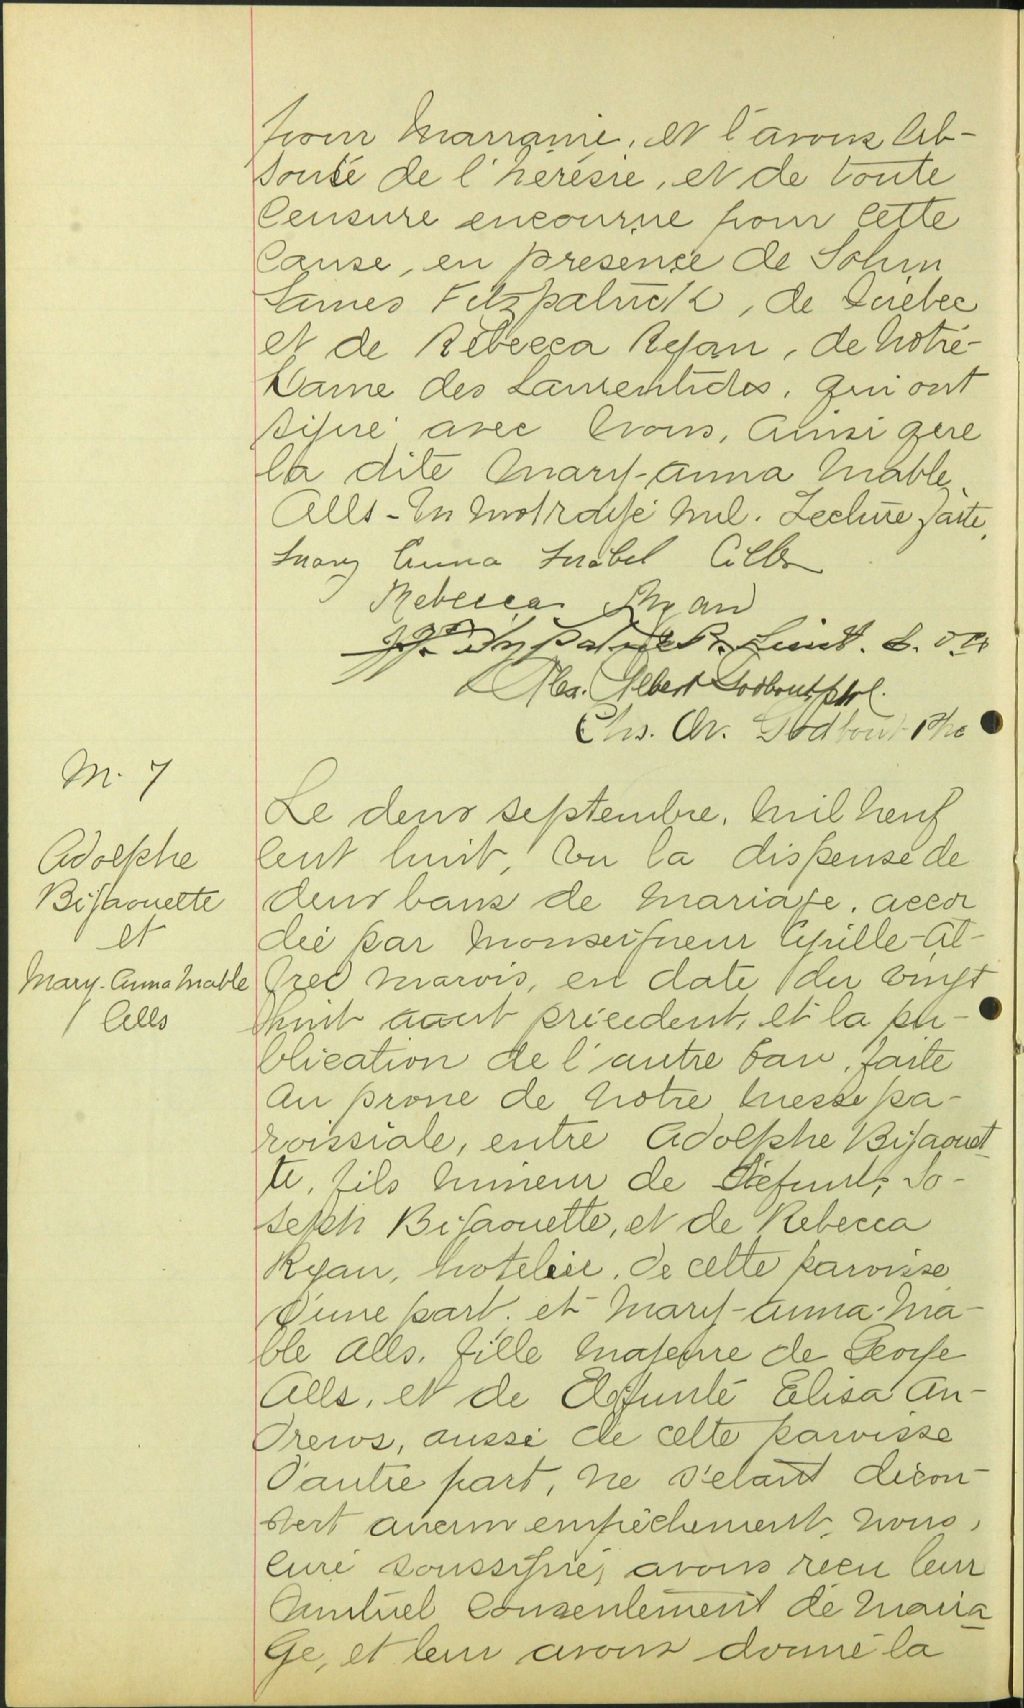 pour Marraine, et l'avons Ab-
souté de l'hérésie, et de toute
Censure encourue pour cette
cause, en présence de John
James Fitzpatrick, de Québec
et de Rébecca Ryan, de Notre-
Dame des Laurentides, qui ont
signé avec nous, ainsi que
la dite Mary-Anna Mable
Alls - Un mot rayé nul. Lecture faite.
Mary Anna Mabel Alls
Rebecca Ryan
J. J. Fitzpatrick Lieut.
Alex. Albert Godbout ptre.
Chs. Ov. Godbout Ptre
M. 7
Adolphe
Bigaouette
et
Mary-Anna Mable
Alls
Le deux septembre, mil neuf
cent huit, vu la dispense de
deux bans de mariage, accor
deé par Monseigneur Cyrille-Al-
fred Marois, en date du vingt
huit aout précédent, et la pu-
blication de l'autre ban, faite
au prone de notre messe pa-
roissiale, entre Adolphe Bigaouet
te, fils mineur de Défunt, Jo-
seph Bigaouette, et de Rebecca
Ryan, hotelière, de cette paroisse
d'une part, et Mary-Anna-Ma-
ble Alls, fille majeure de George
Alls, et de Défunte Elisa An-
drews, aussi de cette paroisse
d'autre part, ne s'étant décou-
vert aucun empêchement, nous,
curé soussigné, avons reçu leur
mutuel consentement de maria
ge, et leur avons donné la